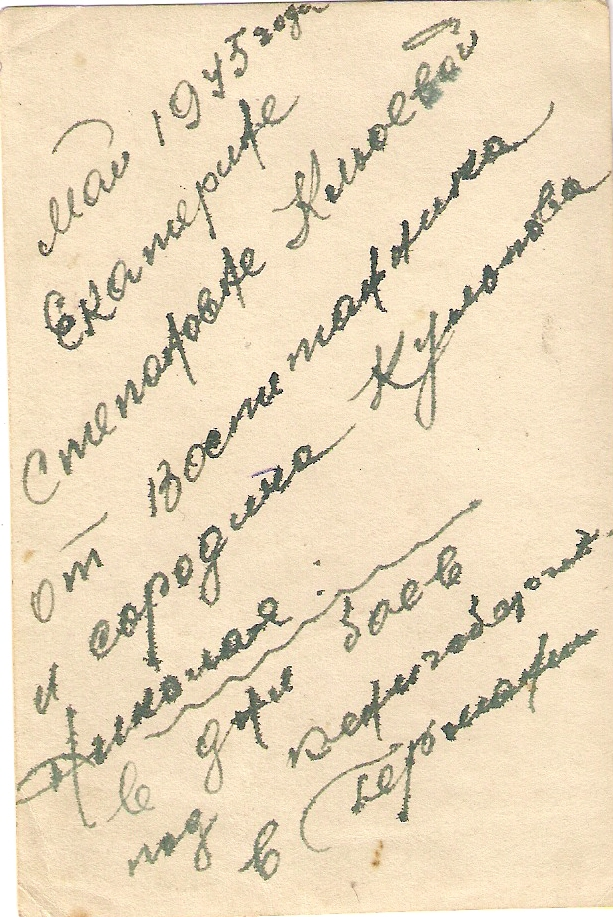 Май 1945 года
Екатерине
Степановне Клюевой
от воспитанника
и сородича Кулюпова
Николая
в дни боев
под кенигсбергом
в Германии